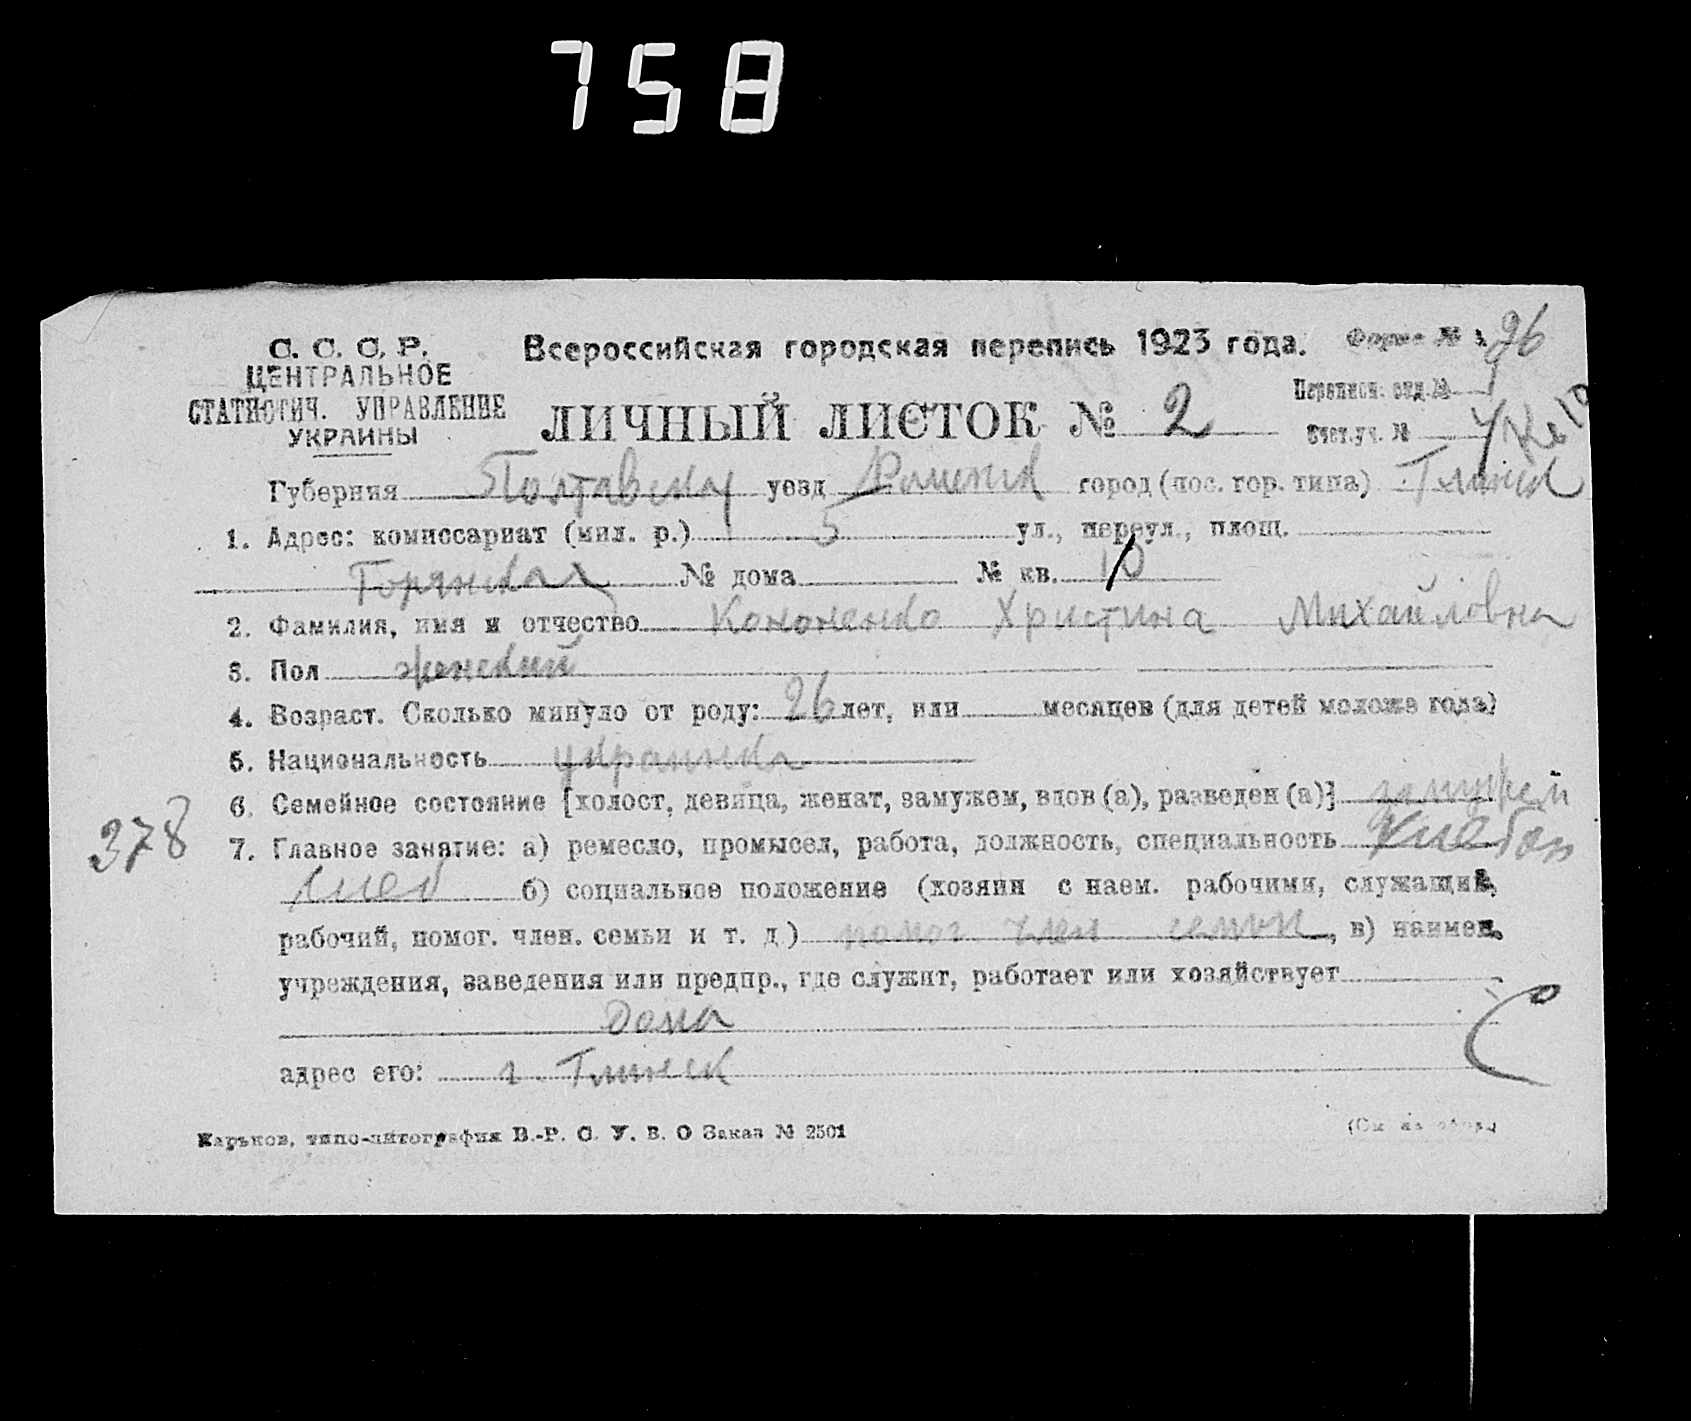 758
С. С. С. Р.
ЦЕНТРАЛЬНОЕ
СТАТИСТИЧ. УПРАВЛЕНИЕ
УКРАИНЫ
Всероссийская городская перепись 1923 года.
Форма № 1
96
ЛИЧНЫЙ ЛИСТОК № 2
Переписн. отд. №
Счет. уч. №
Губерния Полтавская уезд Роменск город (пос. гор. типа) Глинск
1. Адрес: комиссариат (мил. р.) 5 ул., переул., площ.
Горянская № дома № кв. 10
2. Фамилия, имя и отчество Кононенко Христина Михайловна
3. Пол женский
4. Возраст. Сколько минуло от роду: 26 лет, или месяцев (для детей моложе года)
5. Национальность украинка
6. Семейное состояние [холост, девица, женат, замужем, вдов (а), разведен (а)] замужем
378
7. Главное занятие: а) ремесло, промысел, работа, должность, специальность
б) социальное положение (хозяин с наем. рабочими, служащий,
рабочий, помог. член. семьи и т. д.) помог член семьи, в) наимен.
учреждения, заведения или предпр., где служит, работает или хозяйствует
дома
адрес его: г. Глинск
Харьков, типо-литография В.-Р. С. У. В. О Заказ № 2501
(См на обор.)